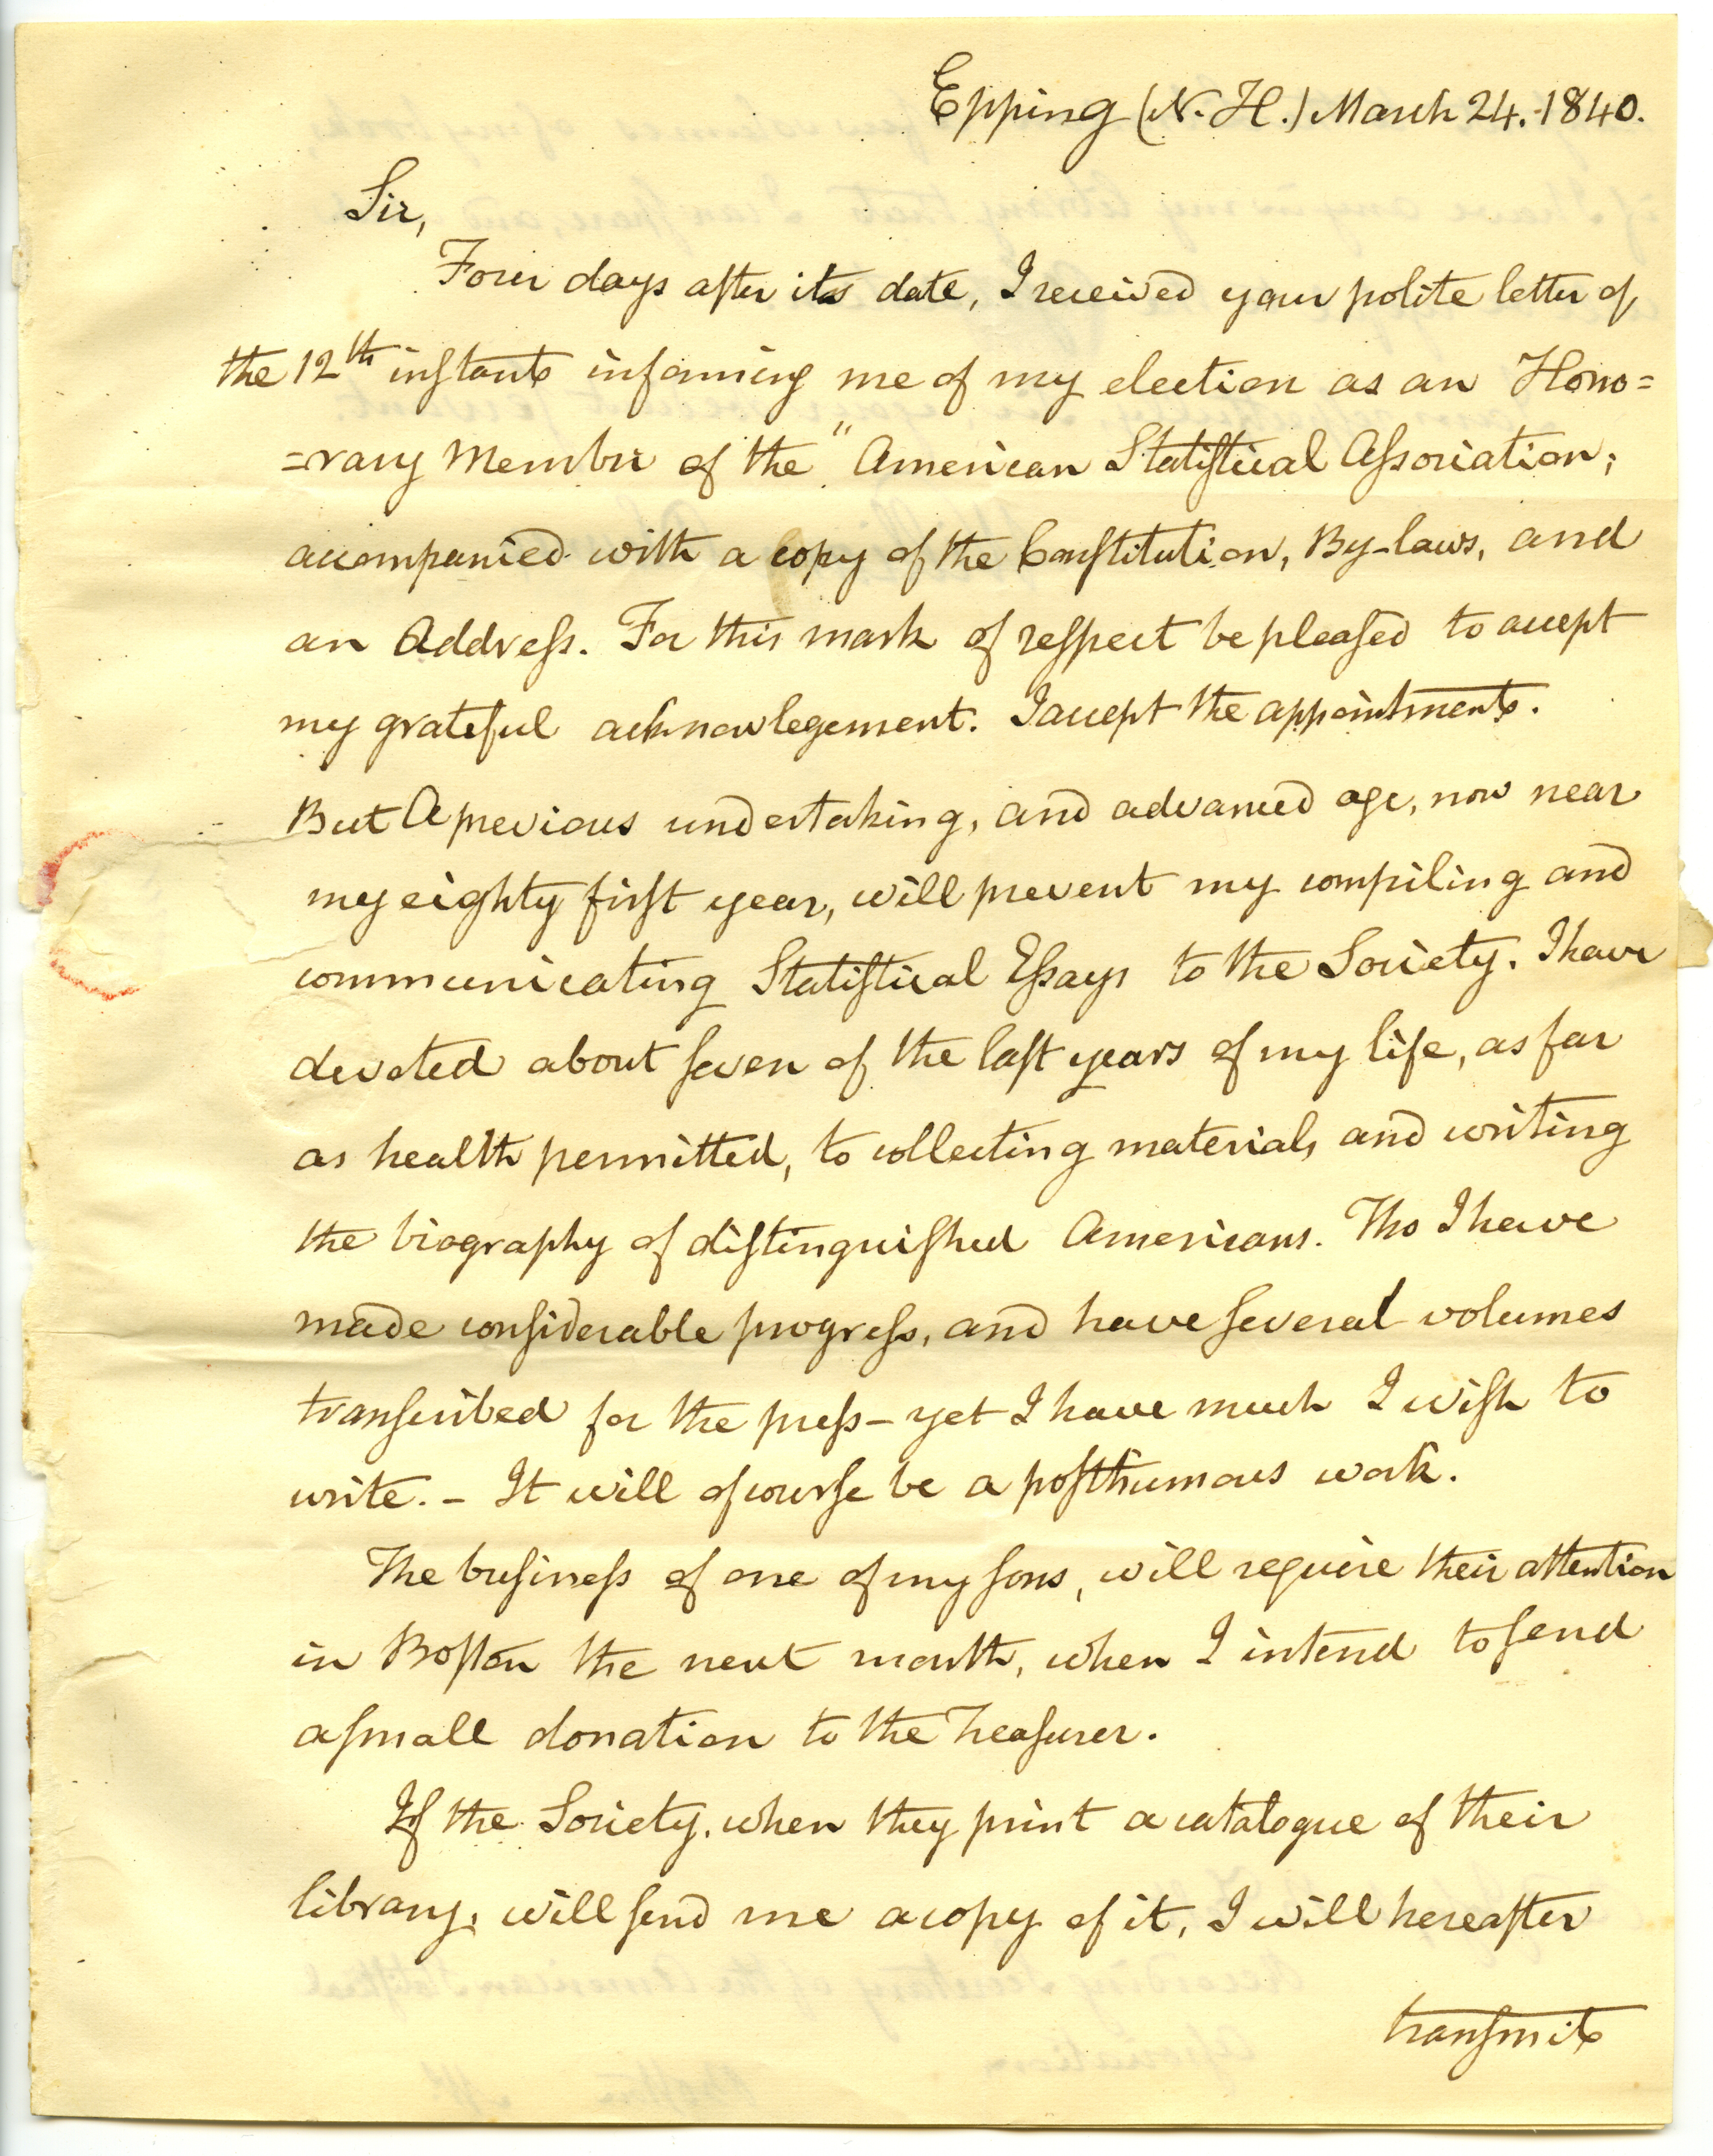 Epping (N. H.) March 24. 1840.
Sir,
Four days after its date, I received your polite letter of
the 12th instant informing me of my election as an Hono=
=rary Member of the "American Statistical Association;
accompanied with a copy of the Constitution, By-laws, and
an Address. For this mark of respect be pleased to accept
my grateful acknowlegement. I accept the appointment.
But a previous undertaking, and advanced age, now near
my eighty first year, will prevent my compiling and
communicating Statistical Essays to the Society. I have
devoted about seven of the last years of my life, as far
as health permitted, to collecting materials and writing
the biography of distinguished Americans. Tho I have
made considerable progress, and have several volumes
transcribed for the press - yet I have much I wish to
write. - It will of course be a posthumous work.
The business of one of my sons, will require their attention
in Boston the next month, when I intend to send
a small donation to the Treasurer.
If the Society, when they print a catalogue of their
library, will send me a copy of it, I will hereafter
transmit